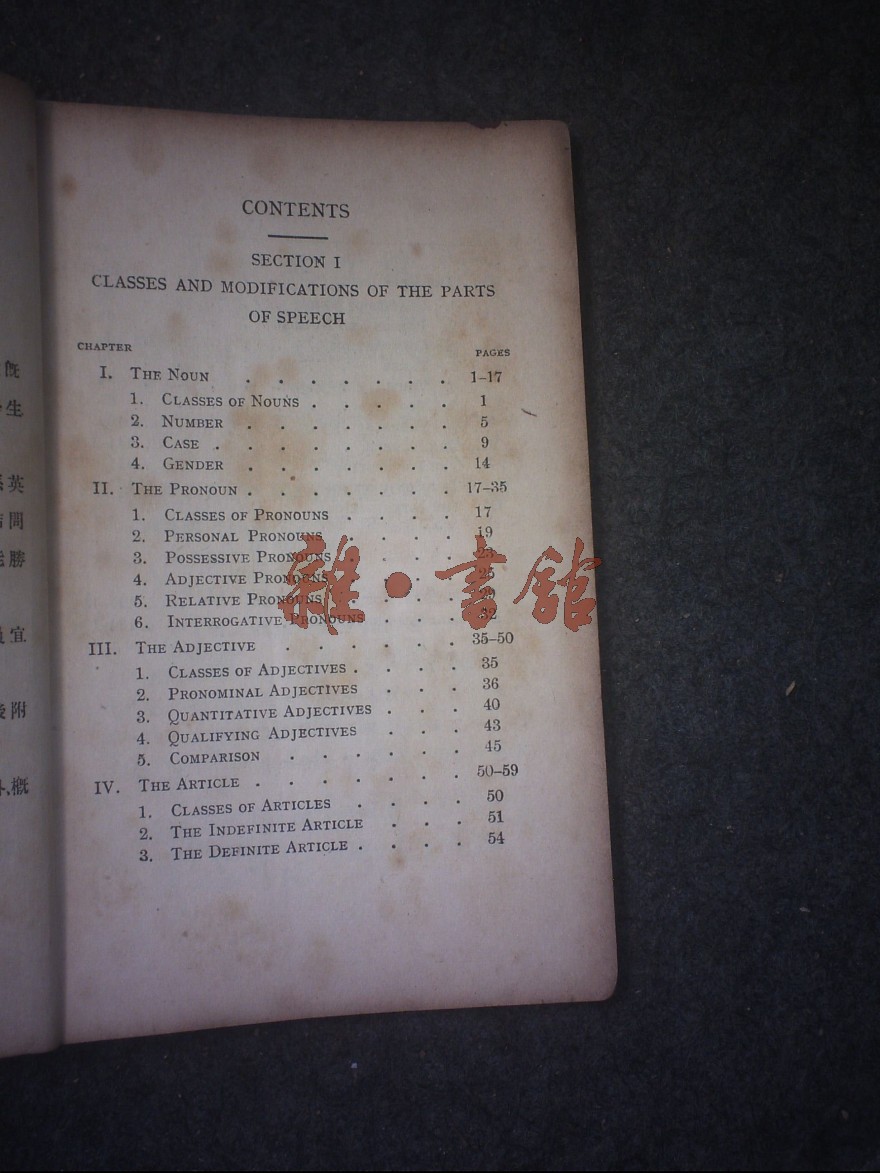 CONTENTS
SECTION I
CLASSES AND MODIFICATIONS OF THE PARTS
OF SPEECH
CHAPTER PAGES
I. THE NOUN . . . . . . . 1–17
1. CLASSES OF NOUNS . . . . . 1
2. NUMBER . . . . . . . 5
3. CASE . . . . . . . . 9
4. GENDER . . . . . . . 14
II. THE PRONOUN . . . . . . . 17–35
1. CLASSES OF PRONOUNS . . . . 17
2. PERSONAL PRONOUNS . . . . 19
3. POSSESSIVE PRONOUNS . . . . 23
4. ADJECTIVE PRONOUNS . . . . 25
5. RELATIVE PRONOUNS . . . . 29
6. INTERROGATIVE PRONOUNS . . . 32
III. THE ADJECTIVE . . . . . . 35–50
1. CLASSES OF ADJECTIVES . . . . 35
2. PRONOMINAL ADJECTIVES . . . 36
3. QUANTITATIVE ADJECTIVES . . . 40
4. QUALIFYING ADJECTIVES . . . 43
5. COMPARISON . . . . . . 45
IV. THE ARTICLE . . . . . . . 50–59
1. CLASSES OF ARTICLES . . . . 50
2. THE INDEFINITE ARTICLE . . . 51
3. THE DEFINITE ARTICLE . . . . 54
雜·書館
既
生
英
間
勝
宜
附
概